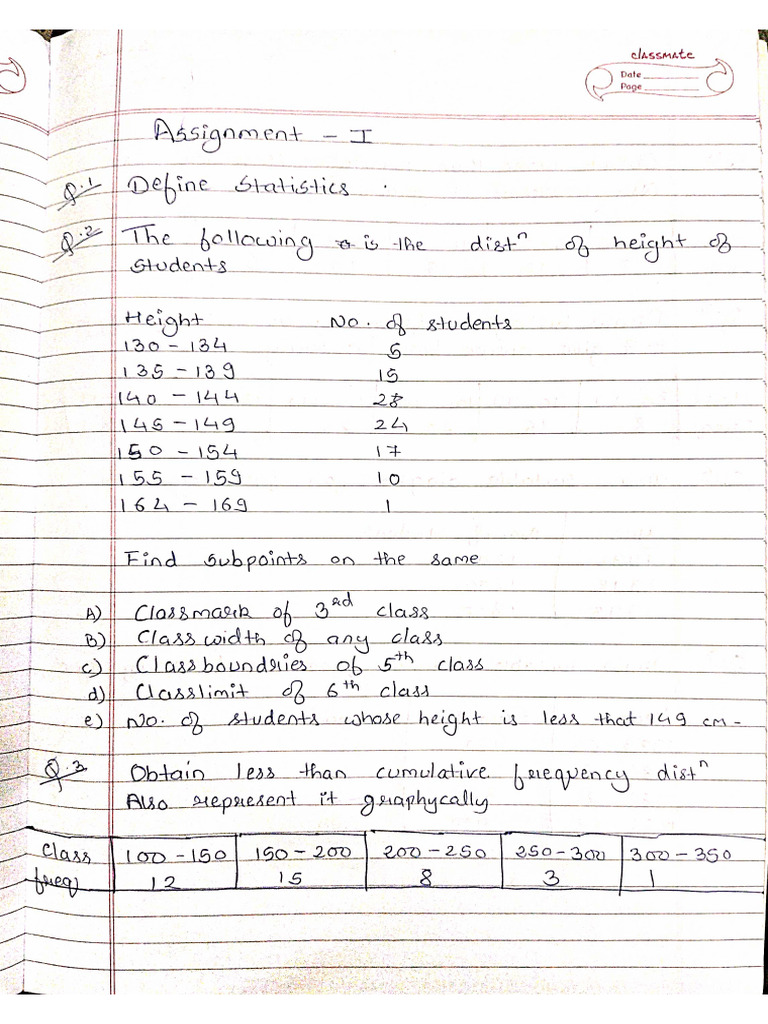 classmate
Date
Page
Assignment - I
Q.1 Define statistics.
Q.2 The following is the distⁿ of height of
students
Height No. of students
130 - 134 5
135 - 139 15
140 - 144 28
145 - 149 24
150 - 154 17
155 - 159 10
164 - 169 1
Find subpoints on the same
A) Classmark of 3rd class
B) Class width of any class
c) Class boundries of 5th class
d) Classlimit of 6th class
e) No. of students whose height is less that 149 cm-
Q.3 Obtain less than cumulative frequency distⁿ
Also represent it graphycally
Class 100-150 150-200 200-250 250-300 300-350
freq 12 15 8 3 1